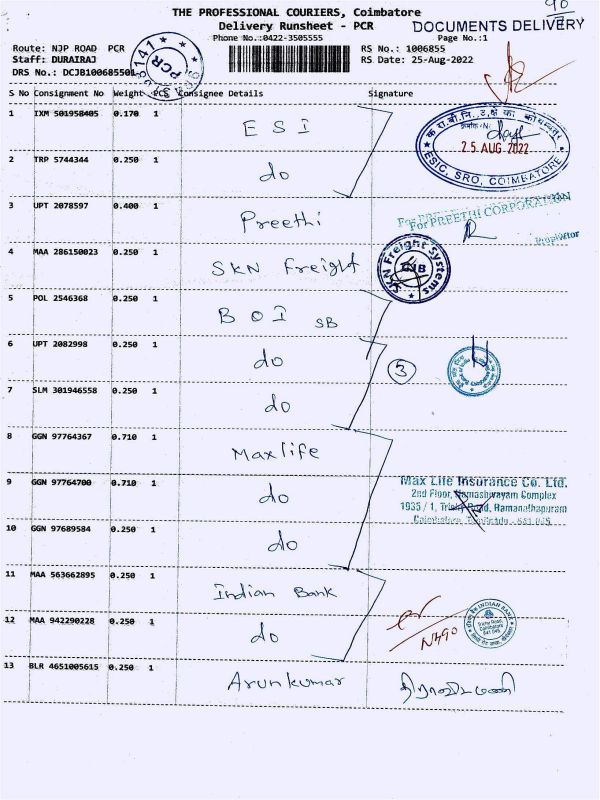 90
THE PROFESSIONAL COURIERS, Coimbatore
Delivery Runsheet - PCR
DOCUMENTS DELIVERY
Phone No.:0422-3505555
Page No.:1
Route: NJP ROAD PCR
RS No.: 1006855
Staff: DURAIRAJ
RS Date: 25-Aug-2022
DRS No.: DCJB100685501
PCR
S No Consignment No Weight PCS Consignee Details Signature
1 IXM 501958405 0.170 1 ESI
25 AUG 2022
ESIC, SRO, COIMBATORE
2 TRP 5744344 0.250 1 do
3 UPT 2078597 0.400 1 Preethi
For PREETHI CORPORATION
Proprietor
4 MAA 286150023 0.250 1 SKN Freight
SKN Freight Systems
CJB
5 POL 2546368 0.250 1 BOI SB
6 UPT 2082998 0.250 1 do
3
7 SLM 301946558 0.250 1 do
8 GGN 97764367 0.710 1 Maxlife
9 GGN 97764700 0.710 1 do
Max Life Insurance Co. Ltd.
2nd Floor, Namashwayam Complex
1935 / 1, Trichy Road, Ramanathapuram
Coimbatore, Tamilnadu - 641 045
10 GGN 97689584 0.250 1 do
11 MAA 563662895 0.250 1 Indian Bank
12 MAA 942290228 0.250 1 do
INDIAN BANK
Trichy Road,
Coimbatore
641 045
13 BLR 4651005615 0.250 1 Arunkumar